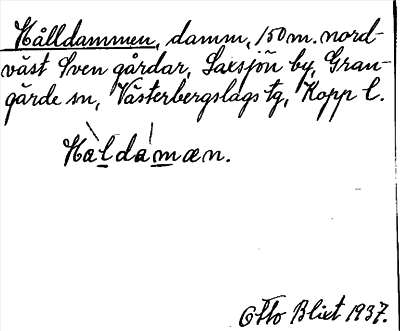 Hålldammen, damm, 150 m. nord-
väst Sven gårdar, Saxsjön by, Gran-
gärde sn, Västerbergslags tg, Kopp l.
Hàldámæn.
Otto Blixt 1937.